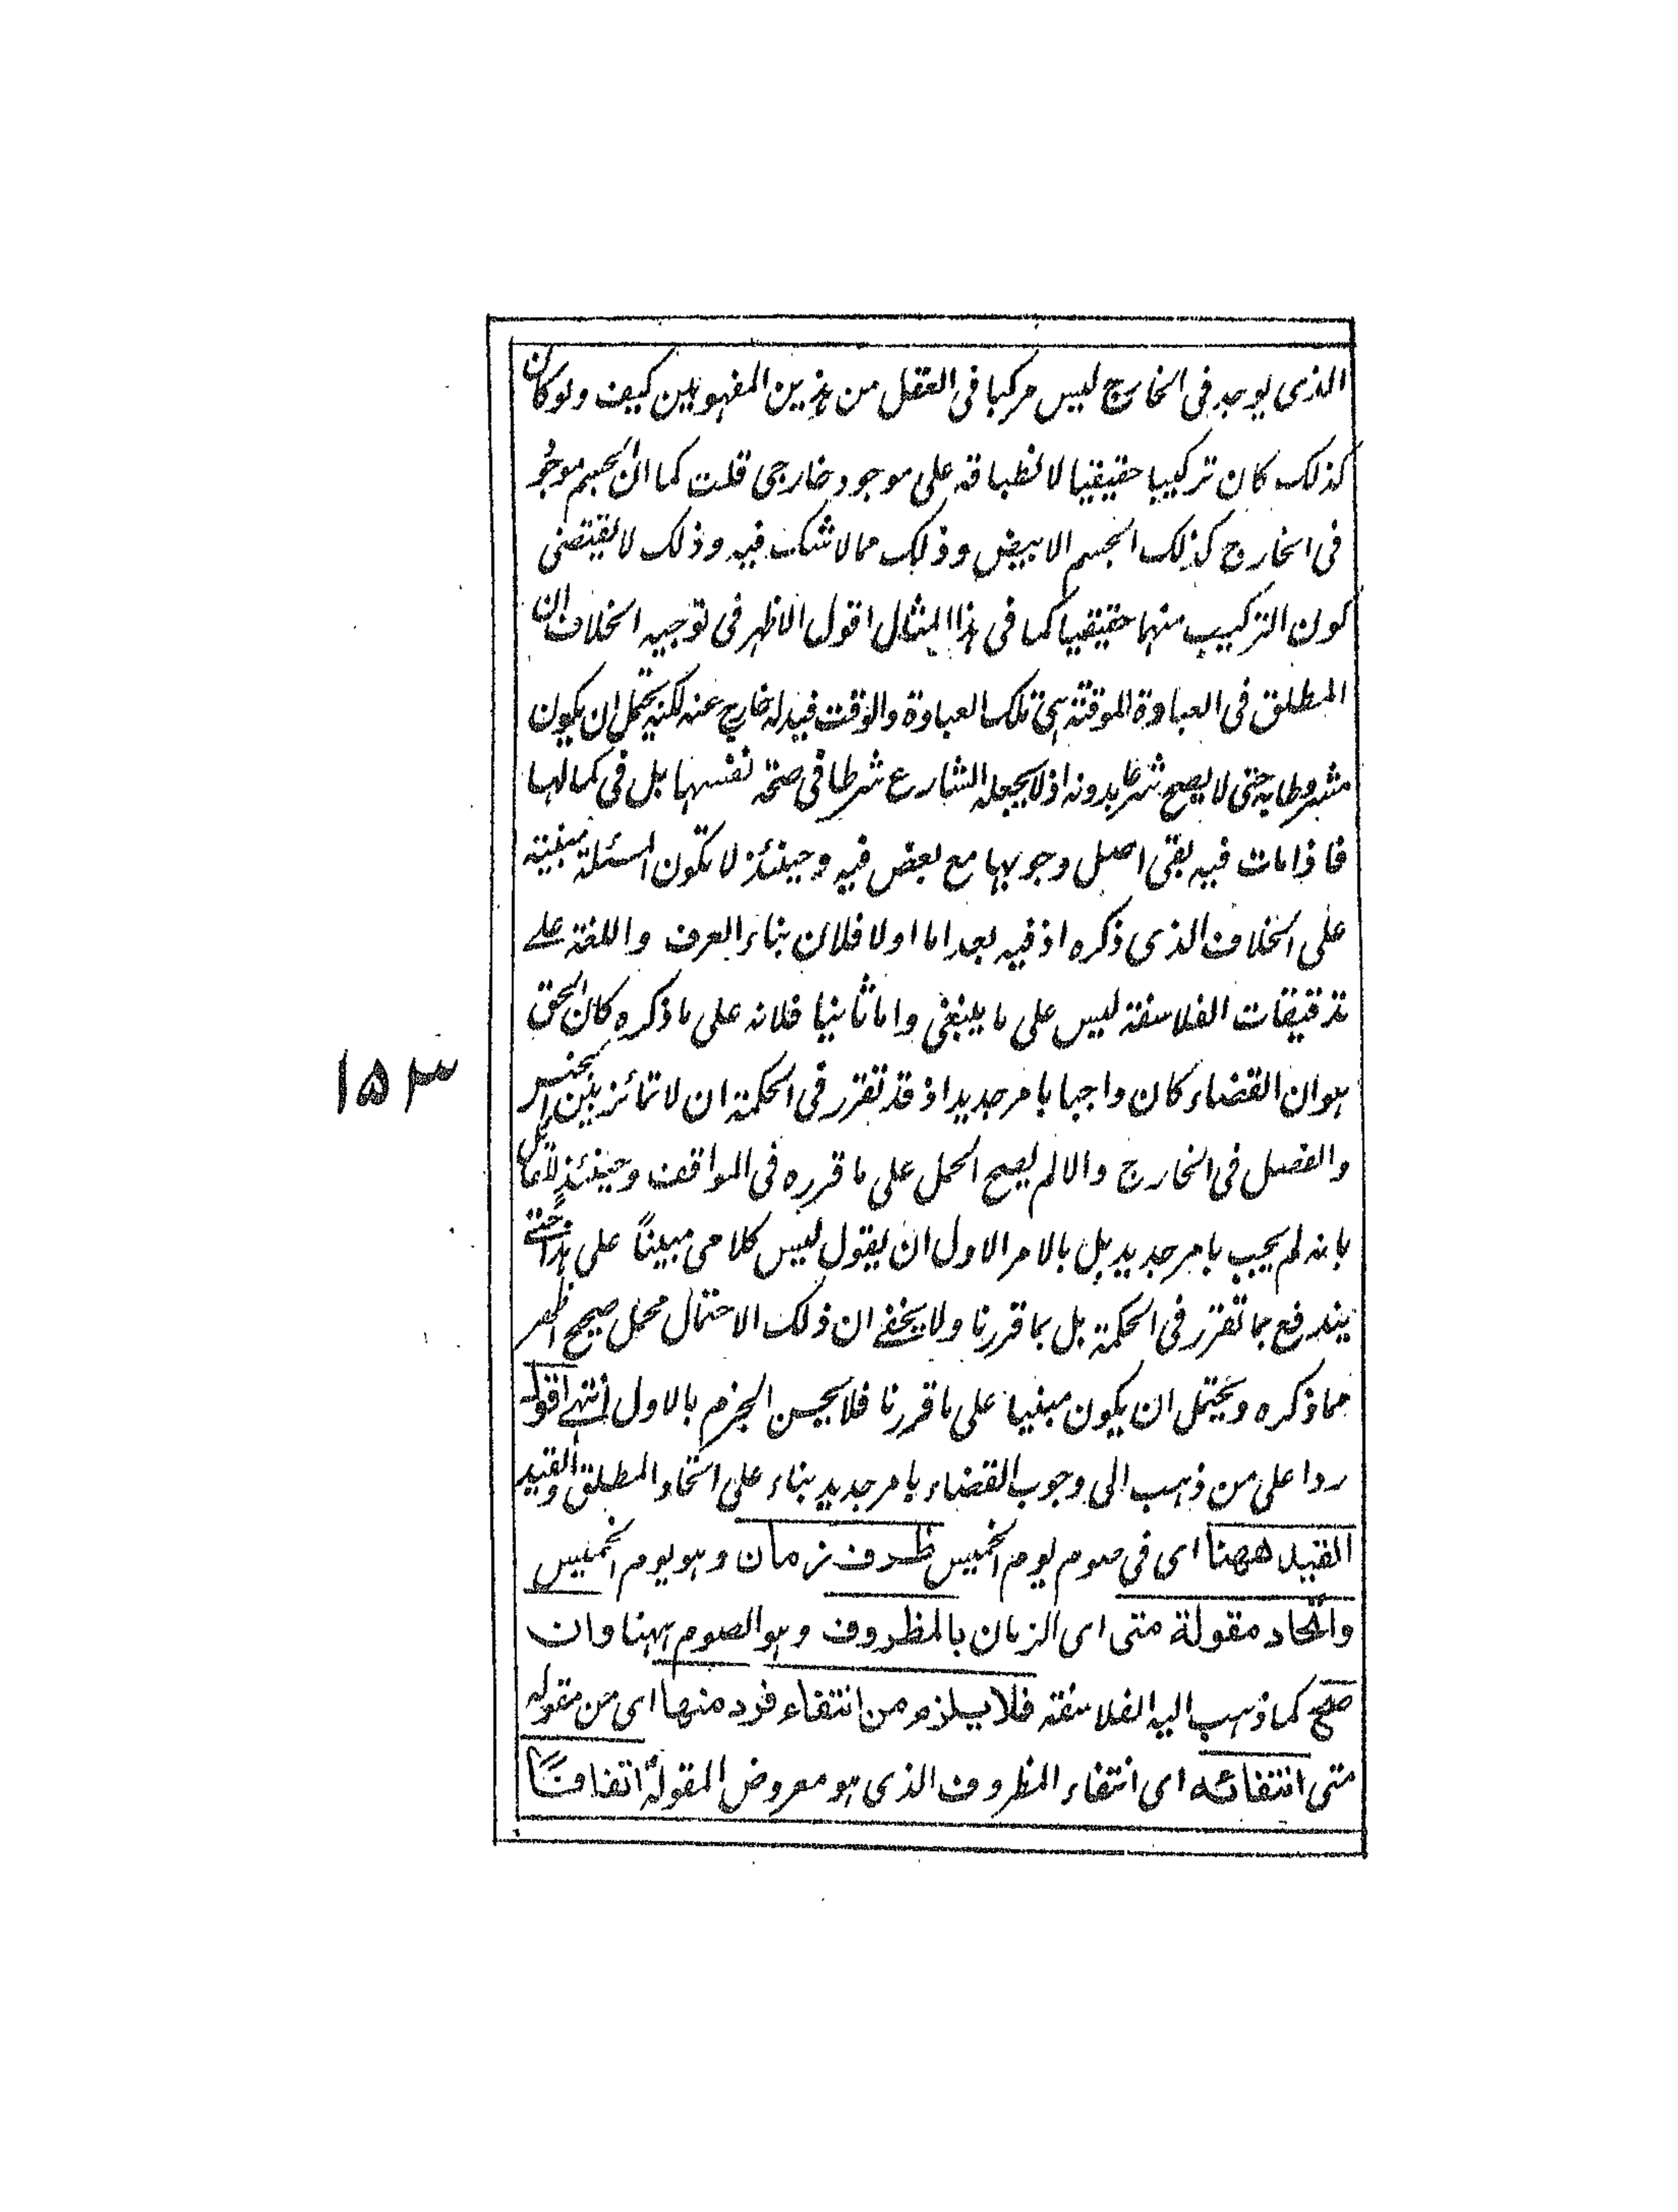 الذی یوجد فی الخارج لیس مرکبا فی العقل من ہذین المفہومین کیف ولو کان
کذلک کان ترکیبا حقیقیا لانطباقہ علی موجود خارجی قلت کما ان الجسم موجود
فی الخارج کذلک الجسم الابیض وذلک مما لا شک فیہ وذلک لا یقتضی
کون الترکیب منہما حقیقیا کما فی ہذا المثال اقول الاظہر فی توجیہ الخلاف ان
المطلق فی العبادة الموقتة ہی تلک العبادة والوقت قید لہ خارج عنہ لکنہ یحتمل ان یکون
مشروطا بہ حتی لا یصح شرعا بدونہ اذ لا یجعلہ الشارع شرطا فی صحة نفسہا بل فی کمالہا
فاذا مات فیہ بقی اصل وجوبہا مع بعض فیہ وحینئذ لا تکون المسئلة مبنیة
علی الخلاف الذی ذکرہ اذ فیہ بعد اما اولا فلان بناء العرف واللغة علے
تدقیقات الفلاسفة لیس علی ما ینبغی واما ثانیا فلانہ علی ما ذکرہ کان الحق
ہو ان القضاء کان واجبا بامر جدید اذ قد تقرر فی الحکمة ان لا تمائز بین الجنس
والفصل فی الخارج والا لم یصح الحمل علی ما قررہ فی المواقف وحینئذ لقائل
بانہ لم یجب بامر جدید بل بالامر الاول ان یقول لیس کلامی مبینًا علی ہذا حتے
یندفع بما تقرر فی الحکمة بل بما قررنا ولا یخفے ان ذلک الاحتمال محمل صحیح اظہر
مما ذکرہ ویحتمل ان یکون مبنیا علی ما قررنا فلا یحسن الجزم بالاول انتہے اقول
ردا علی من ذہب الی وجوب القضاء بامر جدید بناء علی اتحاد المطلق والقید
القید ھھنا ای فی صوم یوم الخمیس ظرف زمان وہو یوم الخمیس
واتحاد مقولة متی ای الزمان بالمظروف وہو الصوم ہہنا وان
صح کما ذہب الیہ الفلاسفة فلا یلزم من انتفاء فرد منھا ای من مقولہ
متی انتفائہ ای انتفاء المظروف الذی ہو معروض المقولة اتفاقًا
۱۵۳